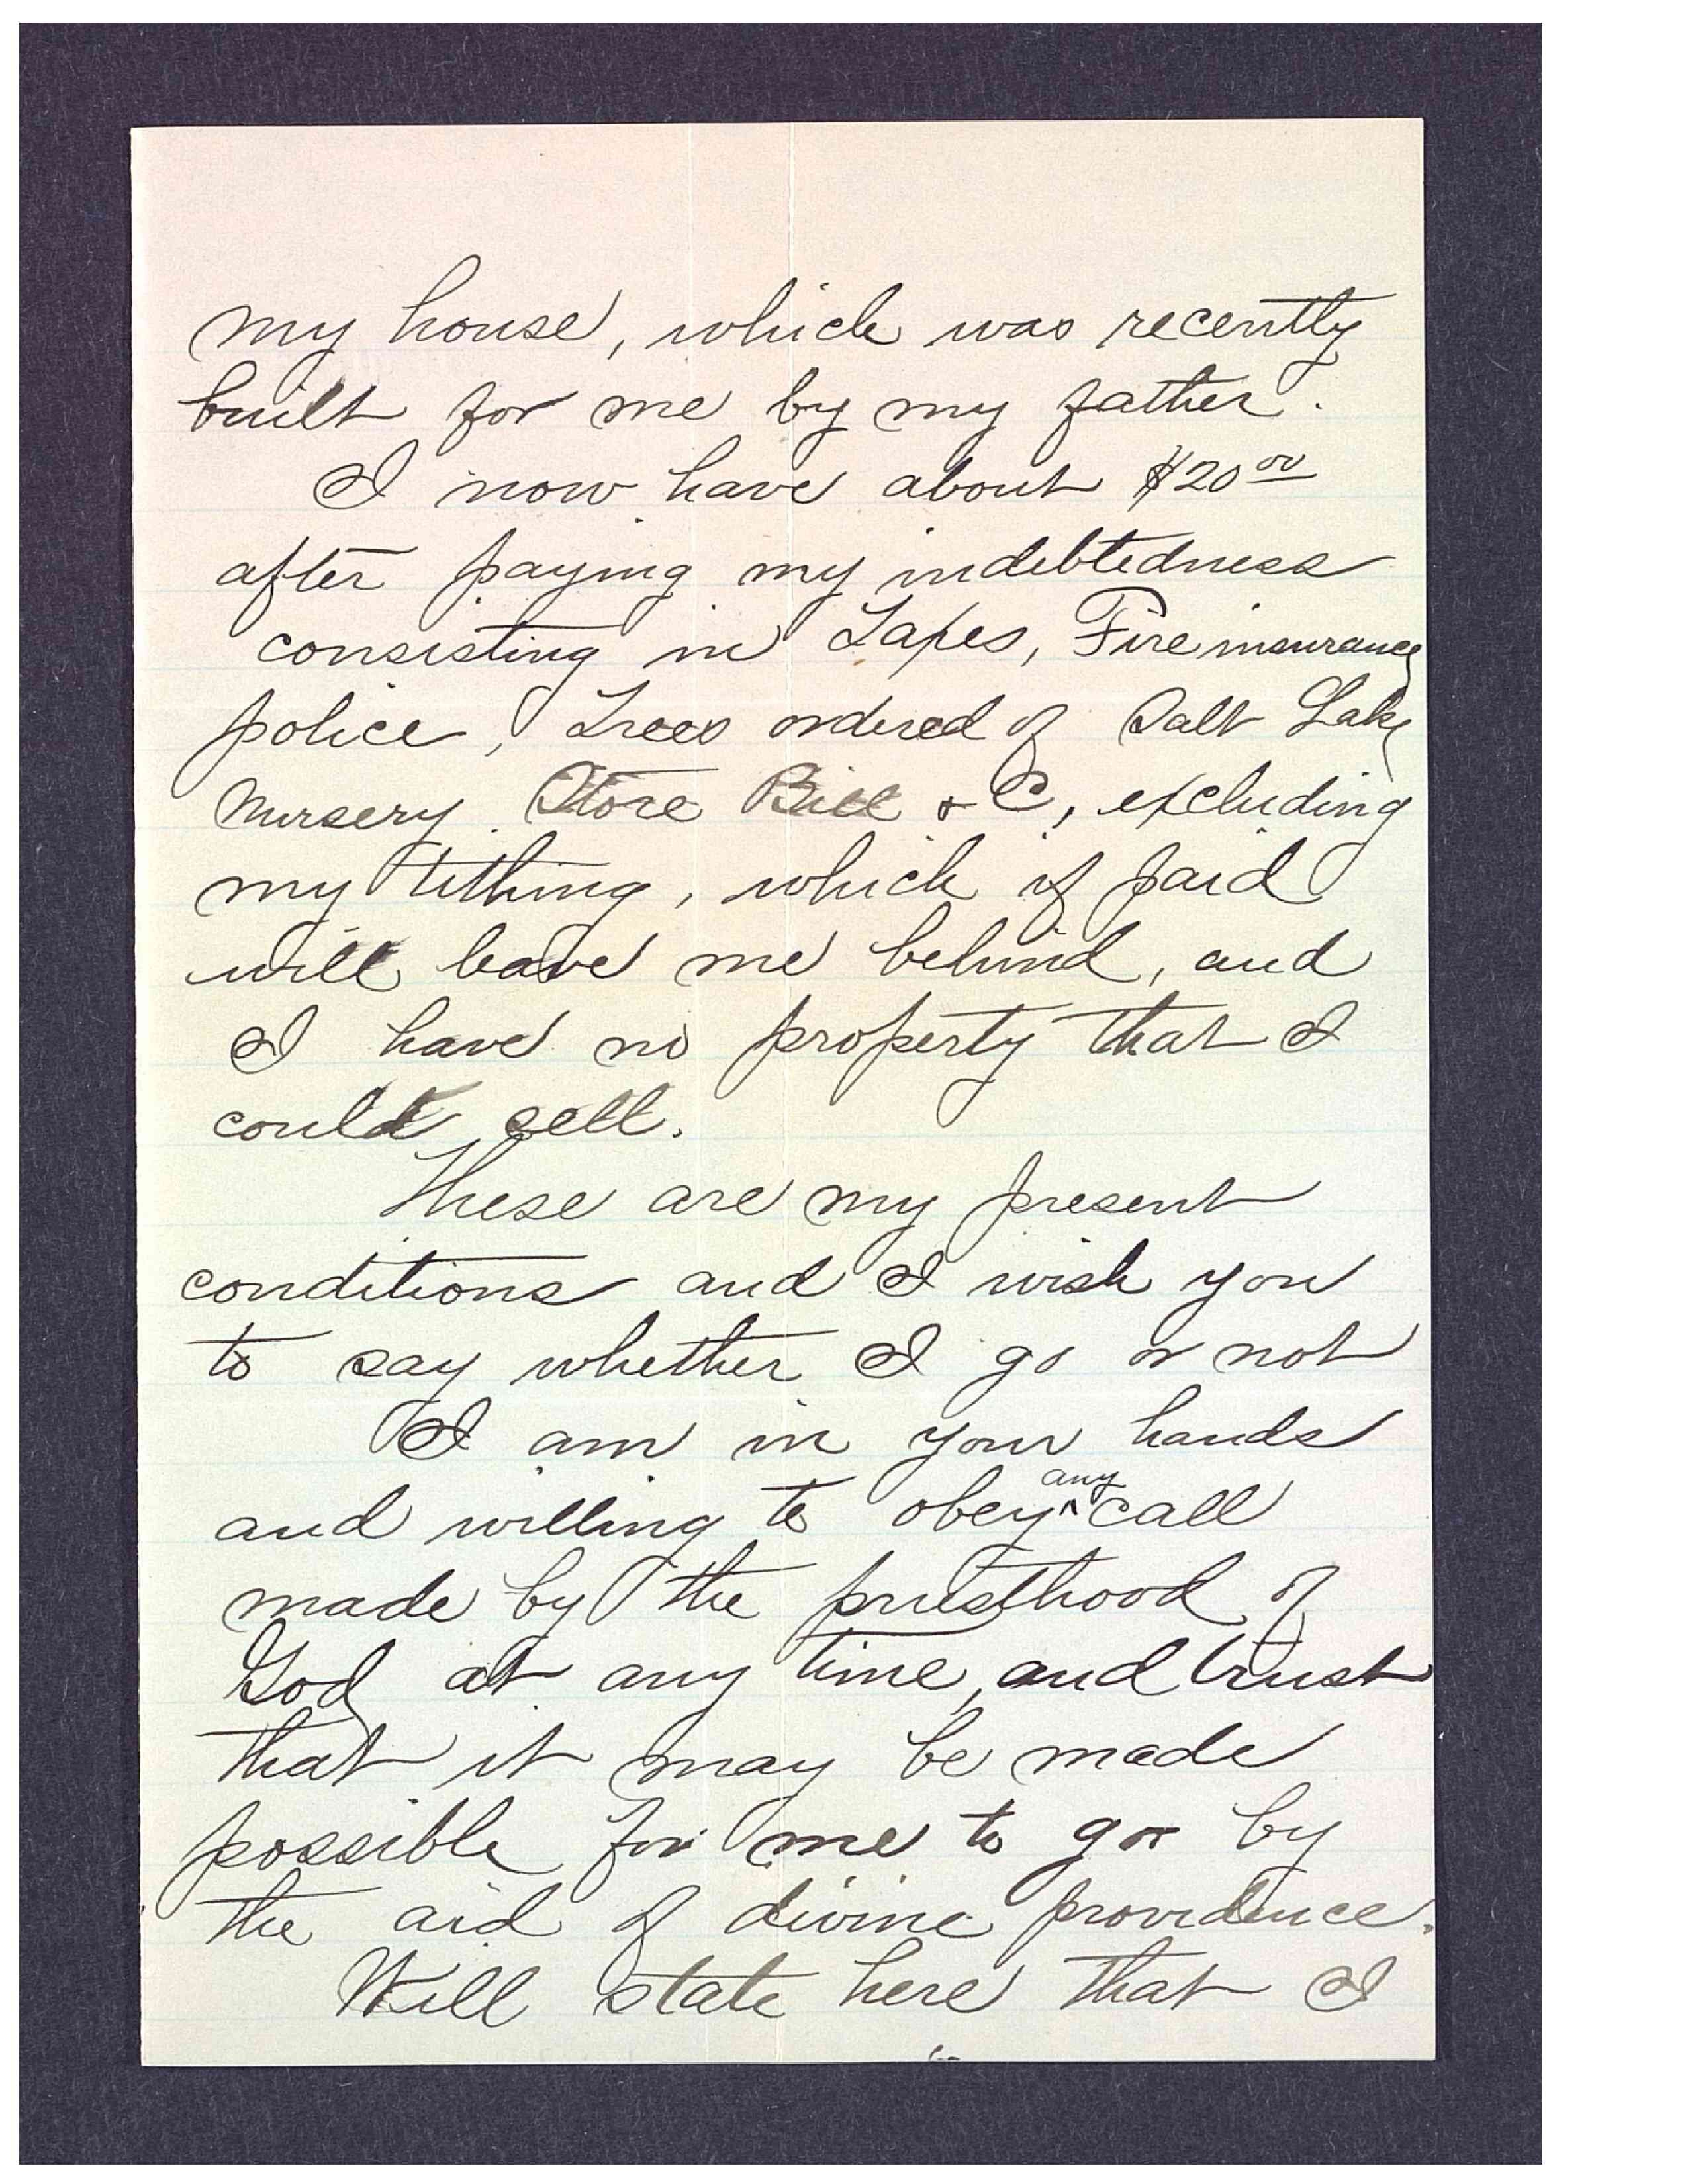 my house, which was recently
built for me by my father.
I now have about $20 00
after paying my indebtedness
consisting in Taxes, Fire insurance
police, Trees ordered of Salt Lake
Nursery. Store Bill & C, excluding
my tithing, which if paid
will leave me behind, and
I have no property that I
could sell.
These are my present
conditions and I wish you
to say whether I go or not
I am in your hands
and willing to obey ^any call
made by the priesthood of
God at any time, and trust
that it may be made
possible for me to go by
the aid of divine providence.
Will state here that I